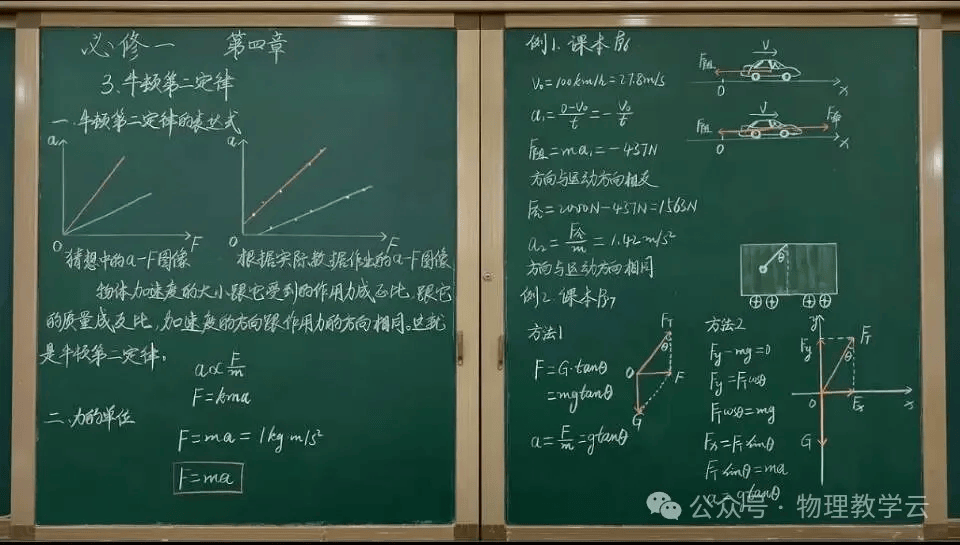 必修一 第四章
3.牛顿第二定律
一.牛顿第二定律的表达式
a
O
F
猜想中的a-F图像
a
O
F
根据实际数据作出的a-F图像
物体加速度的大小跟它受到的作用力成正比,跟它
的质量成反比,加速度的方向跟作用力的方向相同。这就
是牛顿第二定律。
a∝F/m
F=kma
二.力的单位
F=ma=1kg·m/s²
F=ma
例1.课本P86
V₀=100km/h=27.8m/s
a₁=(0-V₀)/t=-V₀/t
F阻=ma₁=-437N
方向与运动方向相反
F合=2000N-437N=1563N
a₂=F合/m=1.42m/s²
方向与运动方向相同
F阻
V
O
x
F阻
V
F牵
O
x
θ
例2.课本P87
方法1
F=G·tanθ
=mgtanθ
a=F/m=gtanθ
FT
θ
O
F
G
方法2
Fy-mg=0
Fy=FTcosθ
FTcosθ=mg
Fx=FTsinθ
FTsinθ=ma
a=gtanθ
y
Fy
FT
θ
O
Fx
x
G
公众号·物理教学云